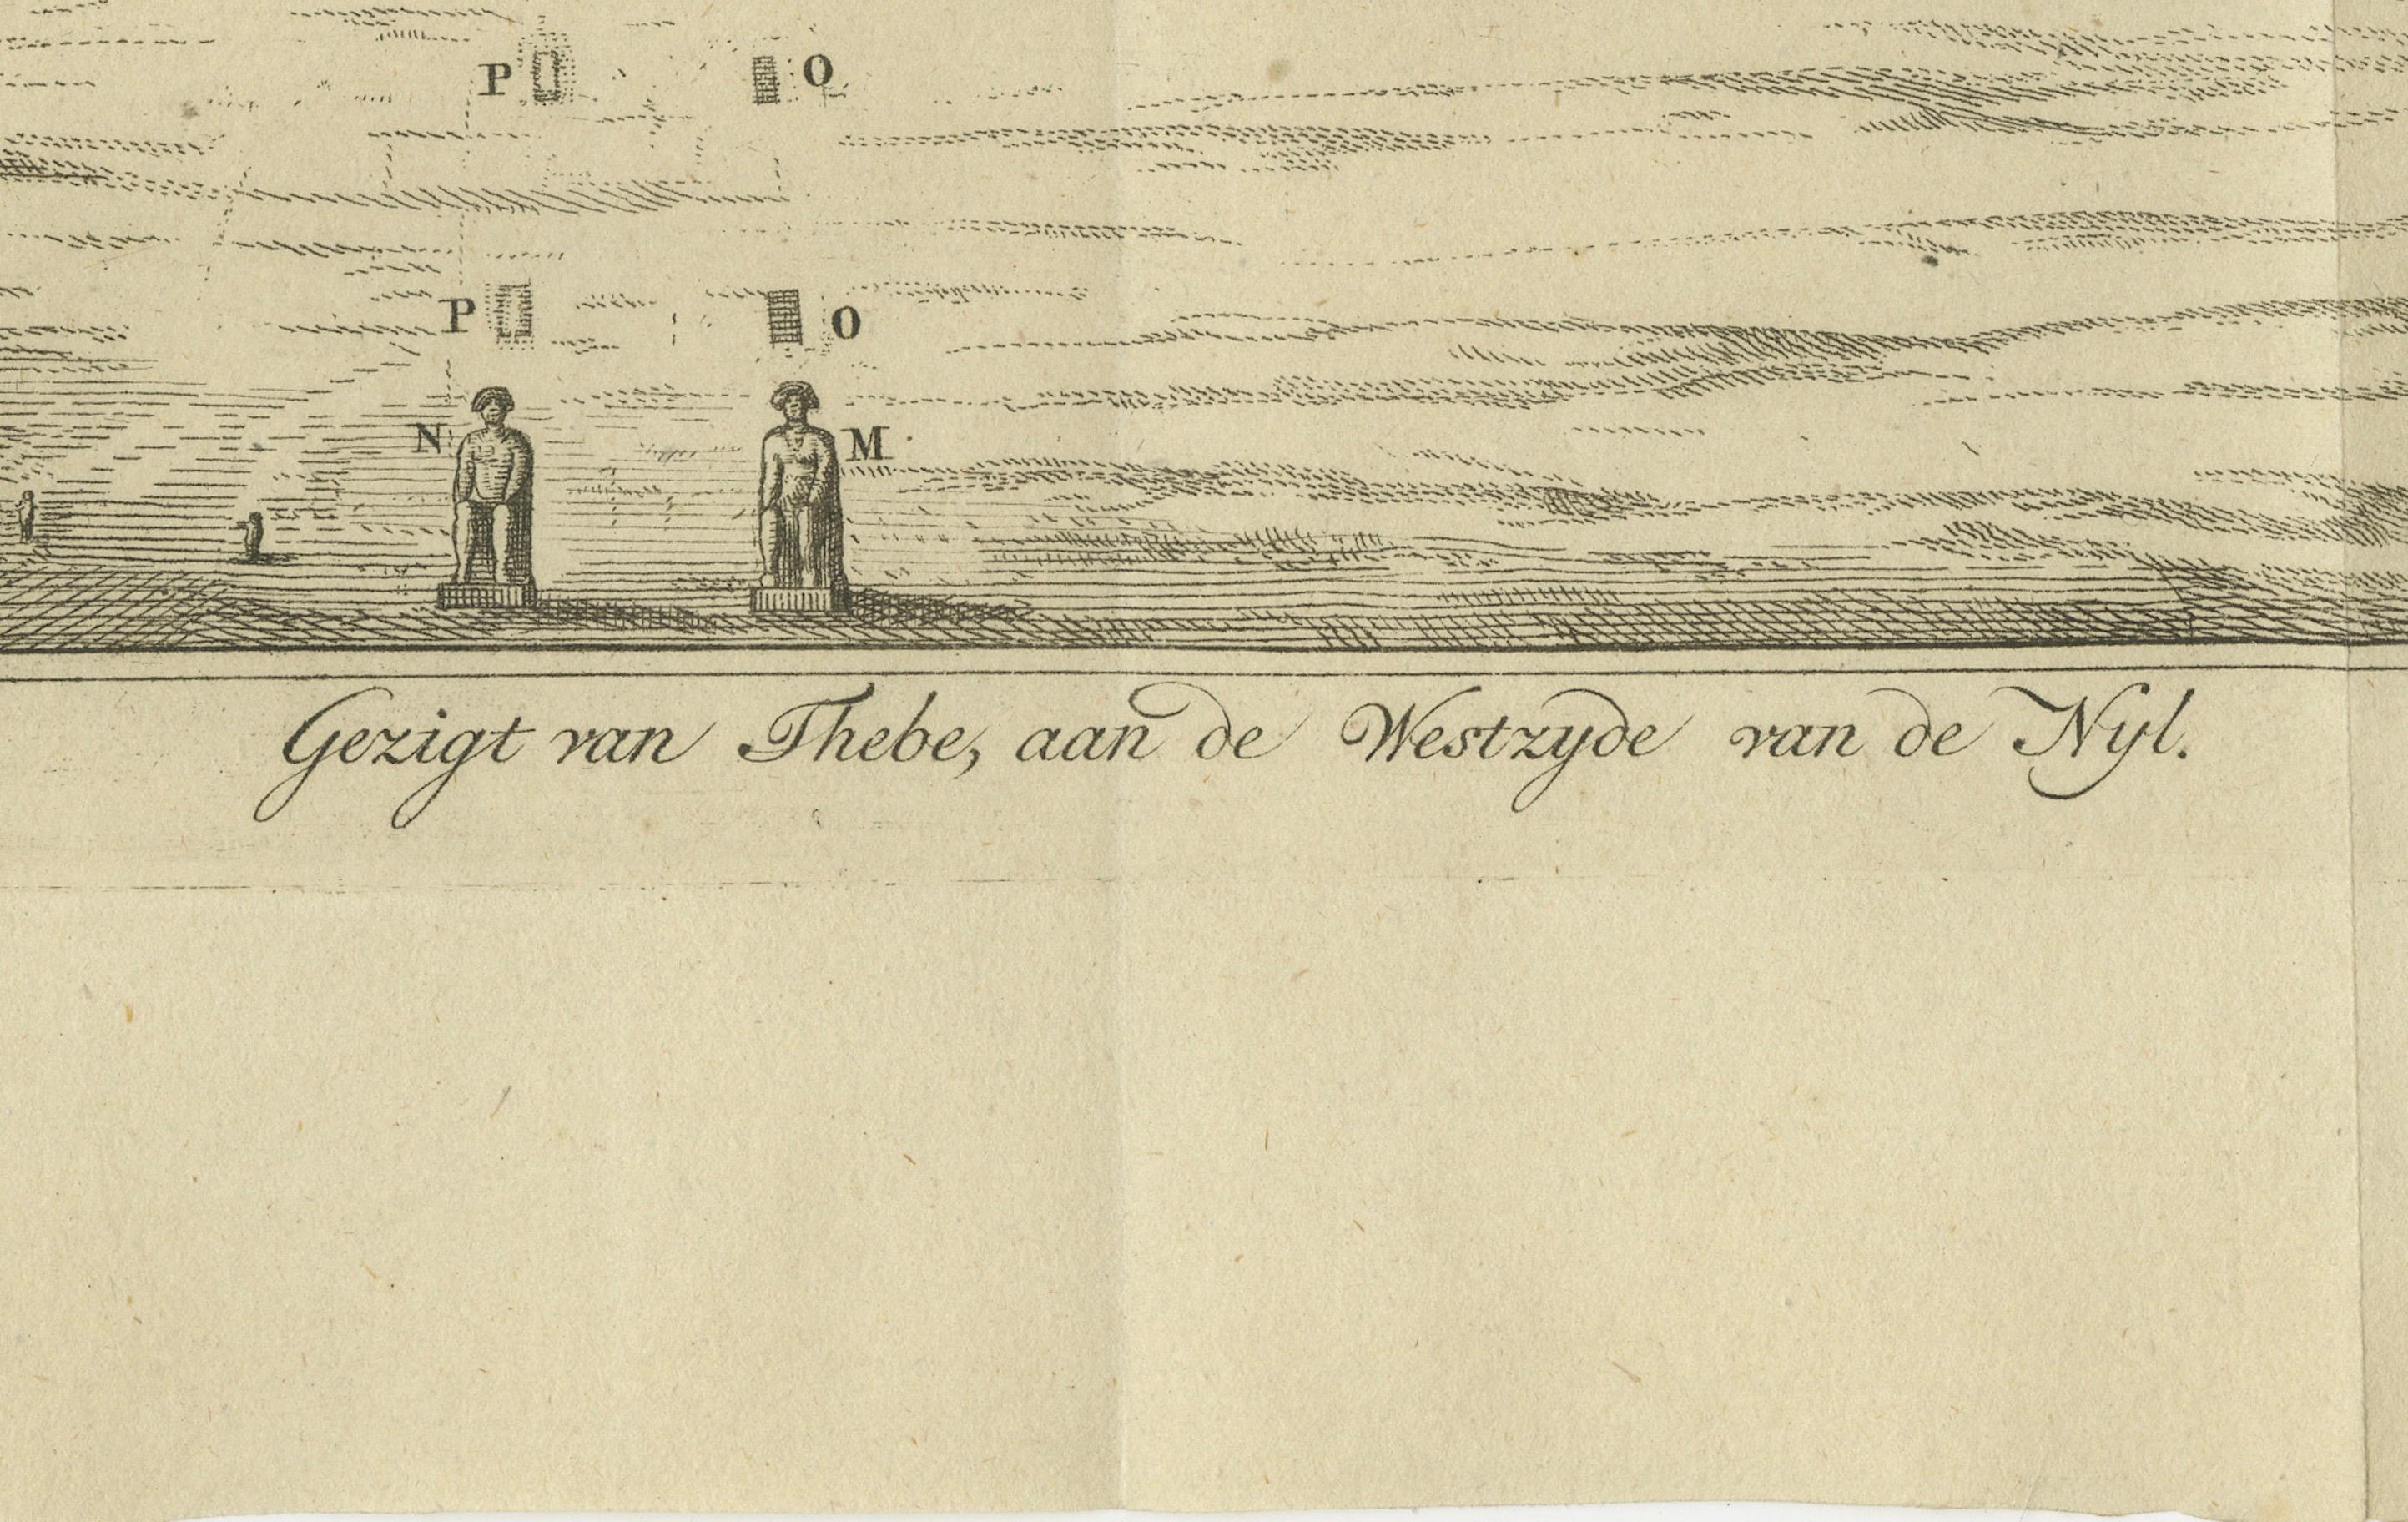 P O
P O
N M
Gezigt van Thebe, aan de Westzyde van de Nyl.